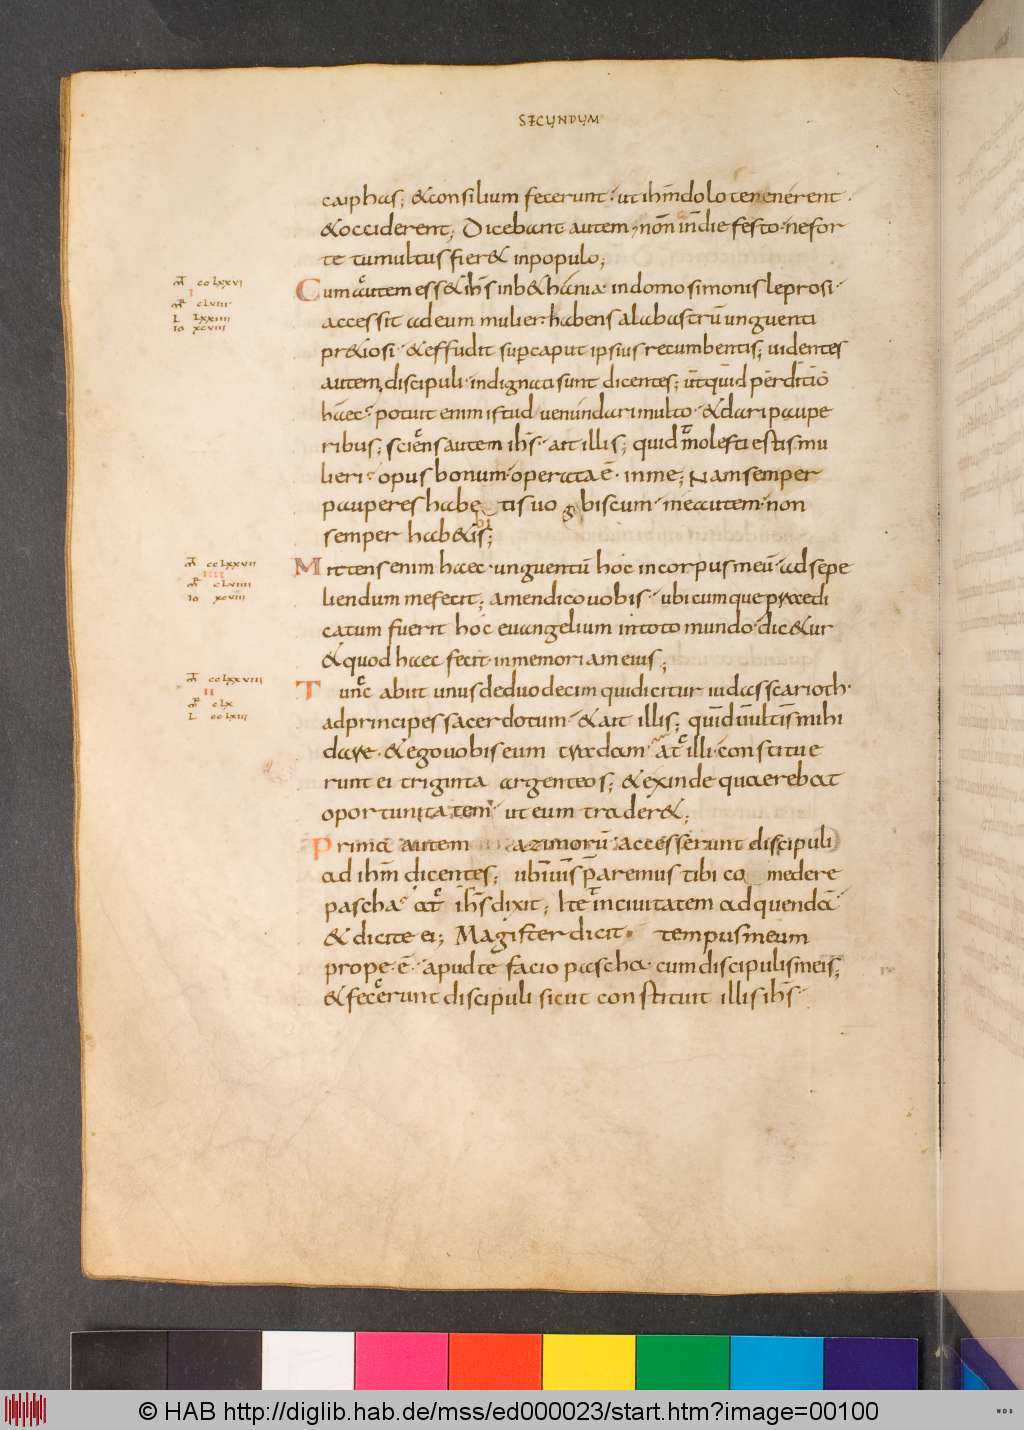 SECUNDUM
caiphas; & consilium fecerunt· ut ihm̄ dolo tenerent·
& occiderent; Dicebant autem· non in die festo· ne for
te tumultus fier& in populo;
mт̄ cclxxvi
I
mр̄ clviii
L lxxiiii
Io xcviii
Cum autem ess& ihs̄ in b&hania in domo simonis leprosi·
accessit ad eum mulier· habens alabastrū unguenti
pr&iosi· & effudit sup̄ caput ipsius recumbentis; uidentes
autem discipuli· indignati sunt dicentes; ut quid perditio
haec· potuit enim istud uenundari multo· & dari paupe
ribus; sciens autem ihs̄· ait illis; quid molesti estis mu
lieri· opus bonum· operata ē· in me; Nam semper
pauperes habe tis uo biscum· me autem· non
semper hab&is;
mт̄ cclxxvii
IIII
mр̄ clviiii
Io xcviii
Mittens enim haec· unguentū hoc in corpus meū· ad sepe
liendum me fecit; amen dico uobis· ubicumque praedi
catum fuerit hoc euangelium in toto mundo· dic&ur
& quod haec fecit· in memoriam eius;
mт̄ cclxxviii
II
mр̄ clx
L cclxiii
Tunc abiit unus de duodecim qui dicitur iudas scarioth·
ad principes sacerdotum· & ait illis; quid uultis mihi
dare· & ego uobis eum tradam· at illi· constitue
runt ei triginta argenteos; & exinde quaerebat
oportunitatem· ut eum trader&;
Prima autem azimorū accesserunt discipuli
ad ihm̄ dicentes; ubi uis p̄paremus tibi co medere
pascha· at ihs̄ dixit; Ite in ciuitatem ad quendā
& dicite ei; Magister dicit· tempus meum
prope· ē· apud te facio pascha· cum discipulis meis;
& fecerunt discipuli sicut constituit illis ihs̄·
© HAB http://diglib.hab.de/mss/ed000023/start.htm?image=00100